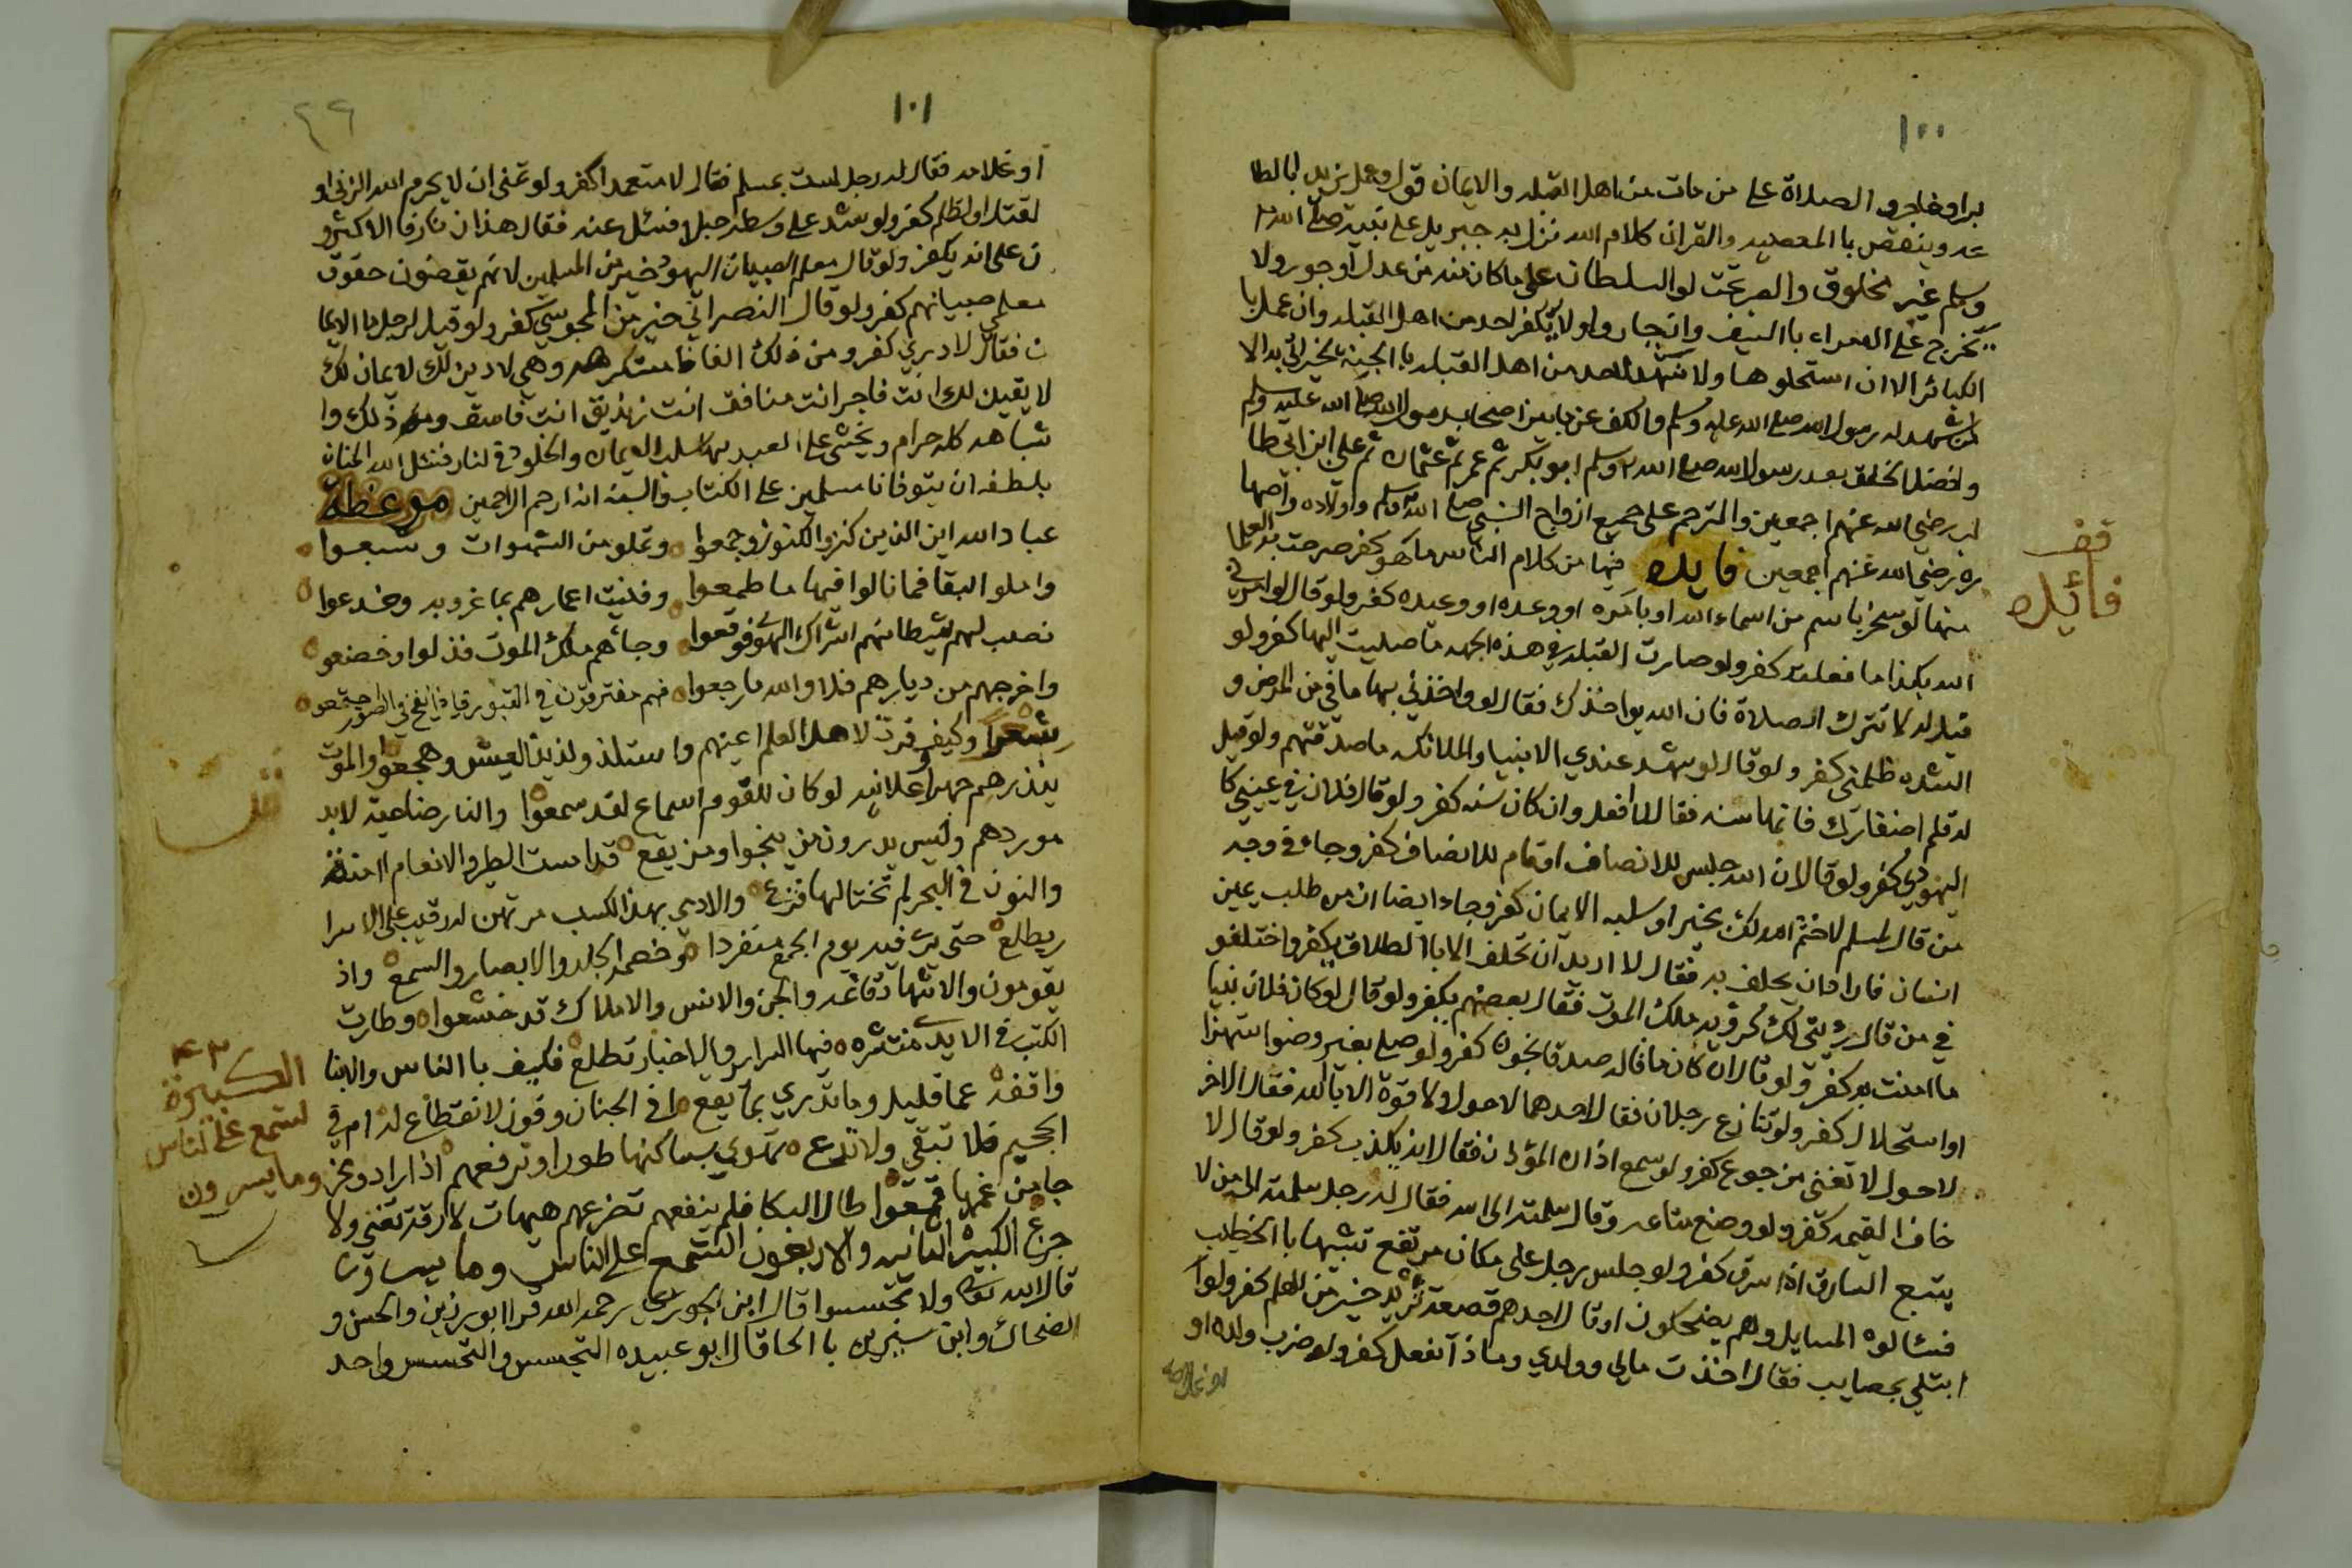 ١٠٠
بر او فاجر والصلاة على من مات من اهل القبله والايمان قول وعمل يزيد بالطا
عه وينقص با المعصيه والقران كلام الله نزل به جبريل على نبيه صلى الله
وسلم غير مخلوق والصبر تحت لوا السلطان على ما كان منه من عدل او جور ولا
نخرج على الامراء با السيف وان جاروا ولا نكفر احد من اهل القبله وان عمل با
الكبائر الا ان استحلوها ولا نشهد لاحد من اهل القبله با الجنة لخير اتى به الا
من شهد له رسول الله صلى الله عليه وسلم والكف عن ما بين اصحاب رسول الله صلى الله عليه وسلم
وافضل الخلق بعد رسول الله صلى الله وسلم ابو بكر ثم عمر ثم عثمان ثم علي ابن ابي طا
لب رضي الله عنهم اجمعين والترحم على جميع ازواج النبي صلى الله وسلم واولاده واصها
ره رضي الله عنهم اجمعين فايده فيها من كلام الناس ما هو كفر صرحت به العلما
قف
فائده
منها لو سخر باسم من اسماء الله او بامره او وعده او وعيده كفر ولو قال لو امرني
الله بكذا ما فعلت كفر ولو صارت القبله في هذه الجهه ما صليت اليها كفر ولو
قيل له لا تترك الصلاة فان الله يواخذك فقال لو واخذني بها ما في من المرض و
الشده ظلمني كفر ولو قال لو شهد عندي الانبيا والملائكه ما صدقتهم ولو قيل
له قلم اضفارك فانها سنه فقال لا افعل وان كان سنه كفر ولو قال فلان في عيني كا
اليهودي كفر ولو قال ان الله جلس للانصاف او قام للانصاف كفر وجاء في وجه
من قال لمسلم لا ختم الله لك بخير او سلبه الايمان كفر وجاء ايضا ان من طلب يمين
انسان فاراد ان يحلف به فقال لا اريد ان تحلف الا با الطلاق يكفر واختلفو
في من قال رؤيتي لك كرؤيه ملك الموت فقال بعضهم يكفر ولو قال لو كان فلان نبيا
ما امنت به كفر ولو قال ان كان ما قاله صدقا نجونا كفر ولو صلى بغير وضوا ستهزا
او استحلال كفر ولو تنازع رجلان فقال احدهما لا حول ولا قوة الا بالله فقال الاخر
لا حول لا تغني من جوع كفر ولو سمع اذان المؤذن فقال انه يكذب كفر ولو قال لا
خاف القيمه كفر ولو وضع متاعه وقال سلمته الى الله فقال له رجل سلمته الى من لا
يتبع السارق اذا سرق كفر ولو جلس رجل على مكان مرتفع تشبها با الخطيب
فسالوه المسايل وهم يضحكون او قال احدهم قصعة ثريد خير من العلم كفر ولو ا
ابتلي بمصايب فقال اخذت مالي وولدي وماذا تفعل كفر ولو ضرب ولده او
او غلامه
١٠١
او غلامه فقال له رجل لست بمسلم فقال لا متعمدا كفر ولو تمنى ان لا يحرم الله الزنى او
لقتل او الظلم كفر ولو شد على وسطه حبلا فسئل عنه فقال هذا زنار فالاكثرو
ن على انه يكفر ولو قال معلم الصبيان اليهود خير من المسلمين لانهم يقضون حقوق
معلمي صبيانهم كفر ولو قال النصراني خير من المجوسي كفر ولو قيل لرجل ما الايما
ن فقال لا دري كفر ومن ذلك الفاظ مستكرهه وهي لا دين لك لا يمان لك
لا يقين لك انت فاجر انت منافق انت زنديق انت فاسق ومن ذلك وا
شباهه كله حرام ويخشى على العبد بها سلب الايمان والخلود في النار فنسئل الله المنان
بلطفه ان يتوفانا مسلمين على الكتاب والسنه انه ارحم الراحمين موعظة
عباد الله اين الذين كنزو الكنوز وجمعوا وتملو من الشهوات وشبعوا
واملو البقا فما نالوا فيها ما طمعوا وفنيت اعمارهم بما غرو به وخدعوا
نصب لهم شيطانهم اشراك الهوى فوقعوا وجاءهم ملك الموت فذلوا وخضعو
واخرجهم من ديارهم فلا والله ما رجعوا فهم مفترقون في القبور فاذا نفخ في الصور اجتمعو
شعرا وكيف قرت لاهل العلم اعينهم واستلذو لذيذ العيش وهجعوا والموت
ينذرهم جهرا وعلانيه لو كان للقوم اسماع لقد سمعوا والنار ضاحية لا بد
موردهم وليس يدرون من ينجوا ومن يقع قد امست الطير والانعام امنة
والنون في البحر لم تختالها فزع والادمي بهذا الكسب مرتهن له رقيب على الاسرا
ر يطلع حتى يرى فيه يوم الجمع منفردا وخصمه الجلد والابصار والسمع واذ
يقومون والاشهاد قائمه والجن والانس والاملاك قد خشعوا وطارت
الكتب في الايدي منتشره فيها السراير والاخبار تطلع فكيف با الناس والانبا
واقفة عما قليل وما تدري بما يقع افي الجنان وفوز لا انقطاع له ام في
الجحيم فلا تبقي ولا تدع تهوي بساكنها طورا وترفعهم اذا رادو مخر
جا من غمها قمعوا طال البكا فلم ينفعهم تضرعهم هيهات لا رقة تغني ولا
جزع الكبيرة الثانيه والاربعون التسمع على الناس وما يسرون
قال الله تعالى ولا تجسسوا قال ابن الجوري رحمه الله قرا ابو رزين والحسن و
الضحاك وابن سيرين با الحا قال ابو عبيده التجسس والتحسس واحد
٤٢
الكبيرة
لتسمع على الناس
وما يسرون